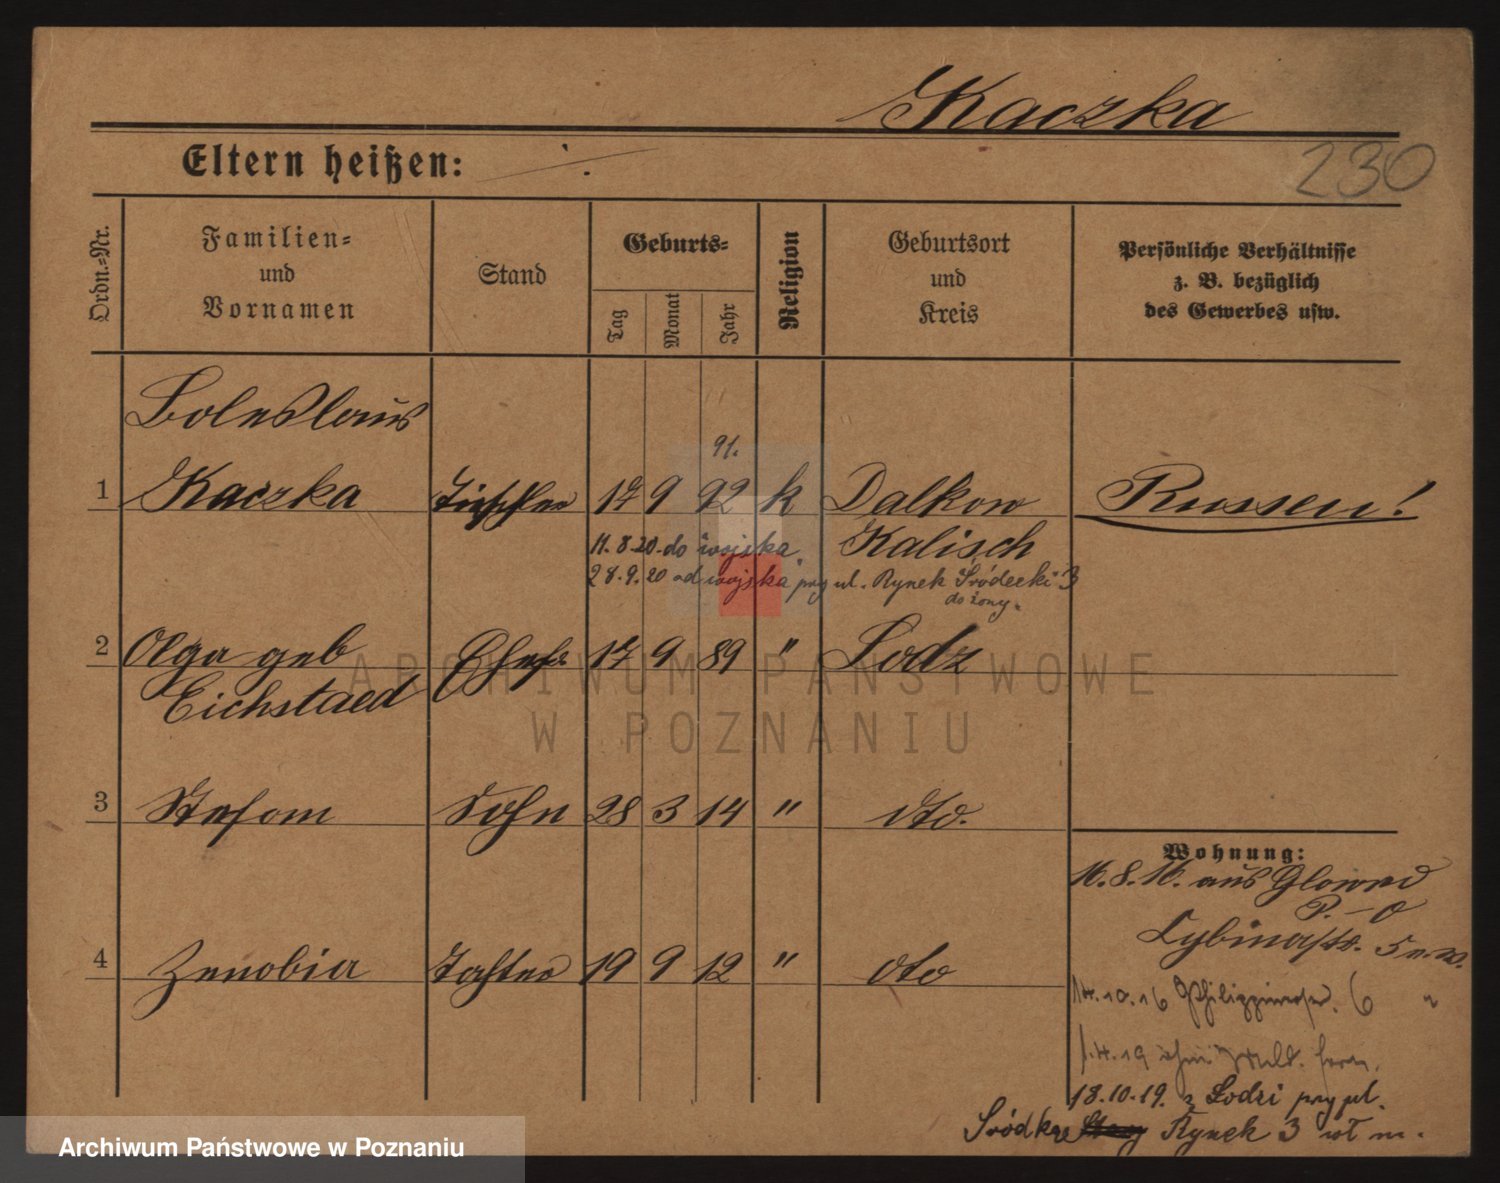 Kaczka
Eltern heißen:
230
Ordn.=Nr.
Familien=
und
Vornamen
Stand
Geburts=
Tag
Monat
Jahr
Religion
Geburtsort
und
Kreis
Persönliche Verhältnisse
z. B. bezüglich
des Gewerbes usw.
Boleslaus
91.
1 Kaczka Tischler 17 9 92 k Dalkow Russen!
11.8.20. do wojska. Kalisch
28.9.20 od wojska przy ul. Rynek Śródecki 3
do żony
2 Olga geb Ehefr 17 9 89 " Lodz
Eichstaed
3 Stefan Sohn 28 3 14 " dto.
4 Zenobia Tochter 19 9 12 " dto
Wohnung:
16.8.16. aus Glowno
P.-O
Cybinastr. 5
14.10.16 6 "
1.4.19
18.10.19. z Lodzi przy ul.
Śródka Rynek 3
ARCHIWUM PAŃSTWOWE
W POZNANIU
Archiwum Państwowe w Poznaniu